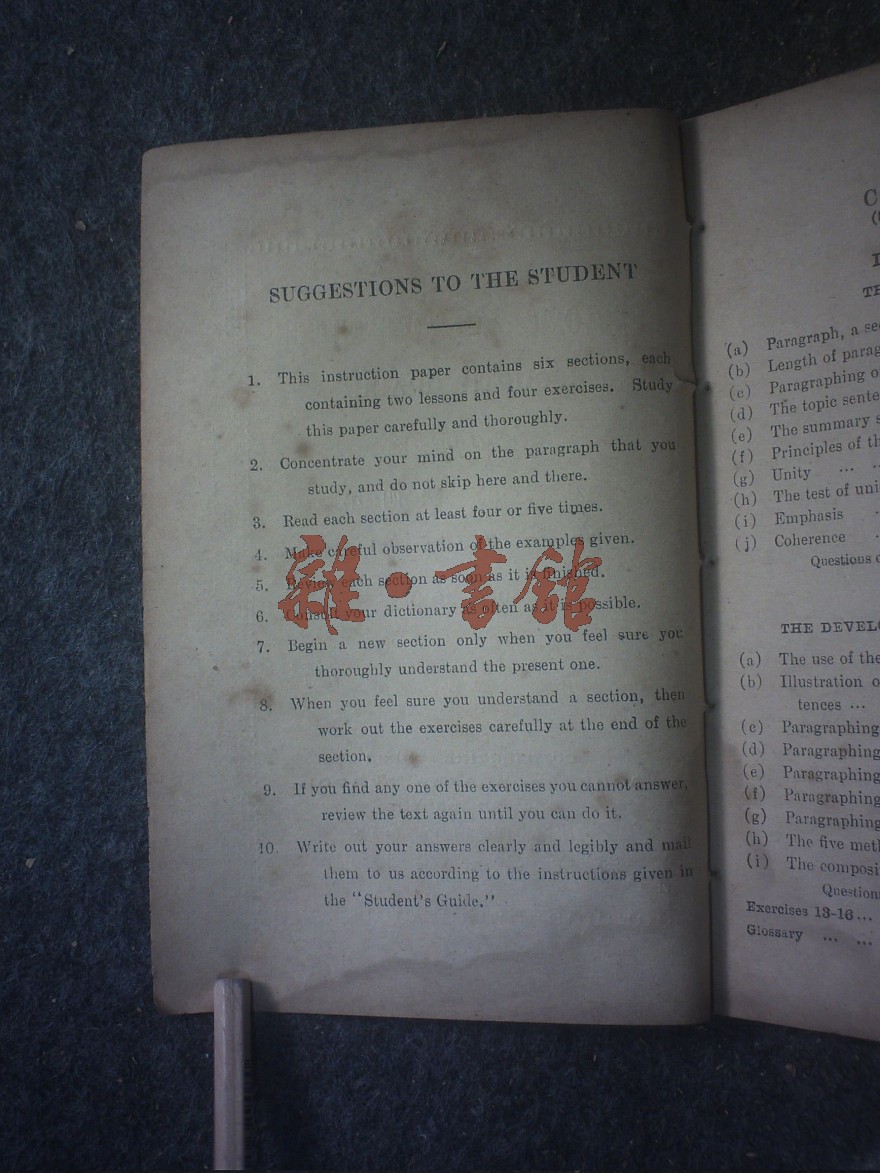 SUGGESTIONS TO THE STUDENT
1. This instruction paper contains six sections, each
containing two lessons and four exercises. Study
this paper carefully and thoroughly.
2. Concentrate your mind on the paragraph that you
study, and do not skip here and there.
3. Read each section at least four or five times.
4. Make careful observation of the examples given.
5. Review each section as soon as it is finished.
6. Consult your dictionary as often as it is possible.
7. Begin a new section only when you feel sure you
thoroughly understand the present one.
8. When you feel sure you understand a section, then
work out the exercises carefully at the end of the
section.
9. If you find any one of the exercises you cannot answer,
review the text again until you can do it.
10. Write out your answers clearly and legibly and mail
them to us according to the instructions given in
the "Student's Guide."
雜·書館
(a) Paragraph, a
(b) Length of
(c) Paragraphing
(d) The topic
(e) The summary
(f) Principles of
(g) Unity ...
(h) The test of
(i) Emphasis
(j) Coherence
Questions
THE
(a) The use of the
(b) Illustration
tences ...
(c) Paragraphing
(d) Paragraphing
(e) Paragraphing
(f) Paragraphing
(g) Paragraphing
(h) The five
(i) The
Questions
Exercises 13-16 ...
Glossary ... ...